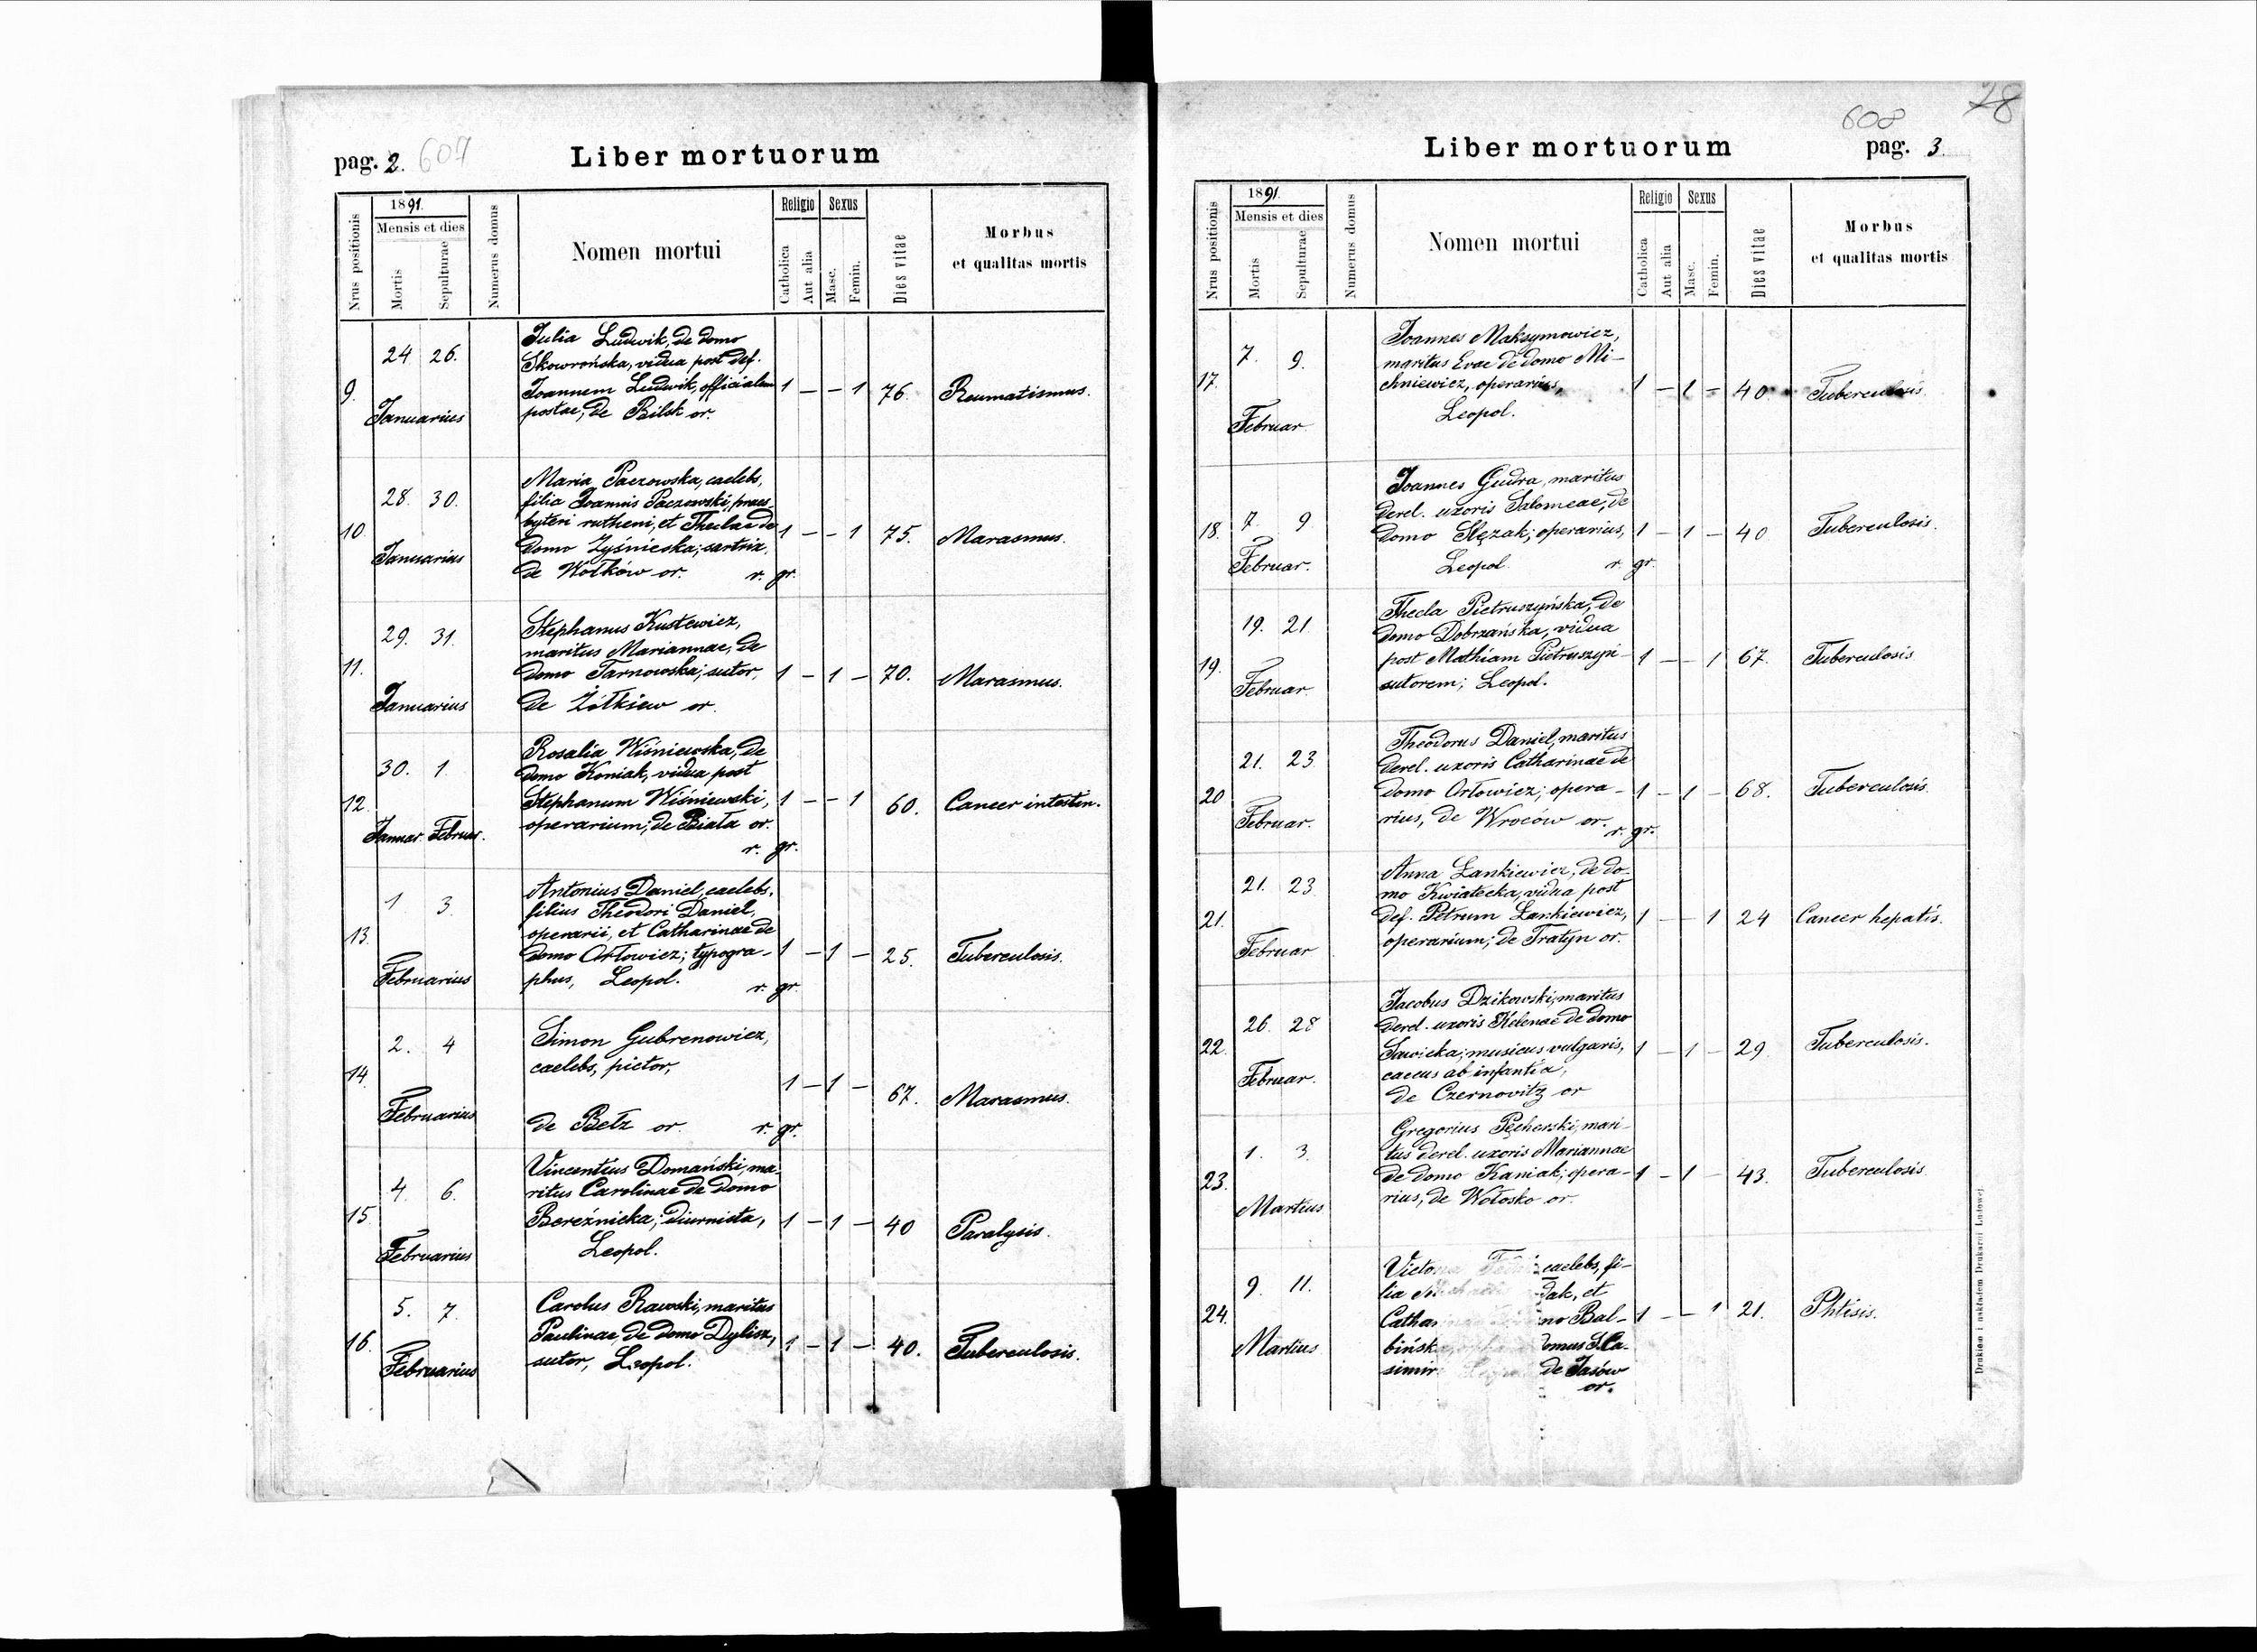 pag. 2. 607
Liber mortuorum
Nrus positionis
1891.
Mensis et dies
Mortis
Sepulturae
Numerus domus
Nomen mortui
Religio
Catholica
Aut alia
Sexus
Masc.
Femin.
Dies vitae
Morbus
et qualitas mortis
9.
24 26.
Januarius
Julia Ludwik, de domo
Skowrońska, vidua post def.
Joannem Ludwik, officialem
postae, de Bilsk or.
1 – – 1 76. Reumatismus.
10.
28. 30.
Januarius
Maria Paczowska, caelebs,
filia Joannis Paczowski, praes-
byteri rutheni, et Theclae de
domo Zyśnieska; sartrix,
de Wołków or. r. gr.
1 – – 1 75. Marasmus.
11.
29. 31.
Januarius
Stephanus Kustewicz,
maritus Mariannae, de
domo Tarnowska; sutor,
de Żółkiew or.
1 – 1 – 70. Marasmus.
12.
30. 1.
Januar. Februar.
Rosalia Wiśniewska, de
domo Koniak, vidua post
Stephanum Wiśniewski,
operarium; de Biała or.
r. gr.
1 – – 1 60. Cancer intestin.
13.
1 3.
Februarius
Antonius Daniel, caelebs,
filius Theodori Daniel,
operarii, et Catharinae de
domo Orłowicz; typogra-
phus, Leopol. r. gr.
1 – 1 – 25. Tuberculosis.
14.
2. 4
Februarius
Simon Gubrenowicz,
caelebs, pictor,
de Bełz or. r. gr.
1 – 1 – 67. Marasmus.
15.
4. 6.
Februarius
Vincentius Domański, ma-
ritus Carolinae de domo
Bereźnicka; diurnista,
Leopol.
1 – 1 – 40 Paralysis.
16.
5. 7.
Februarius
Carolus Rawski, maritus
Paulinae de domo Dylisz,
sutor, Leopol.
1 – 1 – 40. Tuberculosis.
28
608
Liber mortuorum
pag. 3.
Nrus positionis
1891.
Mensis et dies
Mortis
Sepulturae
Numerus domus
Nomen mortui
Religio
Catholica
Aut alia
Sexus
Masc.
Femin.
Dies vitae
Morbus
et qualitas mortis
17.
7. 9.
Februar.
Joannes Maksymowicz,
maritus Evae de domo Mi-
chniewicz, operarius,
Leopol.
1 – 1 – 40 Tuberculosis.
18.
7. 9.
Februar.
Joannes Gudra, maritus
derel. uxoris Salomeae, de
domo Ślęzak; operarius,
Leopol. r. gr.
1 – 1 – 40 Tuberculosis.
19.
19. 21.
Februar.
Thecla Pietruszyńska, de
domo Dobrzańska, vidua
post Mathiam Pietruszyń-
sutorem; Leopol.
1 – – 1 67. Tuberculosis
20
21. 23
Februar.
Theodorus Daniel, maritus
derel. uxoris Catharinae de
domo Orłowicz; opera-
rius, de Wroców or.
r. gr.
1 – 1 – 68. Tuberculosis.
21.
21. 23
Februar
Anna Lankiewicz, de do-
mo Kwiatecka, vidua post
def. Petrum Lankiewicz,
operarium; de Tratyn or.
1 – – 1 24 Cancer hepatis.
22.
26. 28
Februar.
Jacobus Dzikowski, maritus
derel. uxoris Helenae de domo
Sawicka; musicus vulgaris,
caecus ab infantia,
de Czernovitz or
1 – 1 – 29. Tuberculosis.
23.
1. 3.
Martius
Gregorius Pęcherski, mari-
tus derel. uxoris Mariannae
de domo Kaniak; opera-
rius, de Wołosko or.
1 – 1 – 43. Tuberculosis.
24.
9. 11.
Martius
caelebs, fi-
lia dak, et
no Bal-
domus S. Ca-
simir de Jasów
or.
1 – – 1 21. Phtisis.
Drukiem i nakładem Drukarni Ludowej